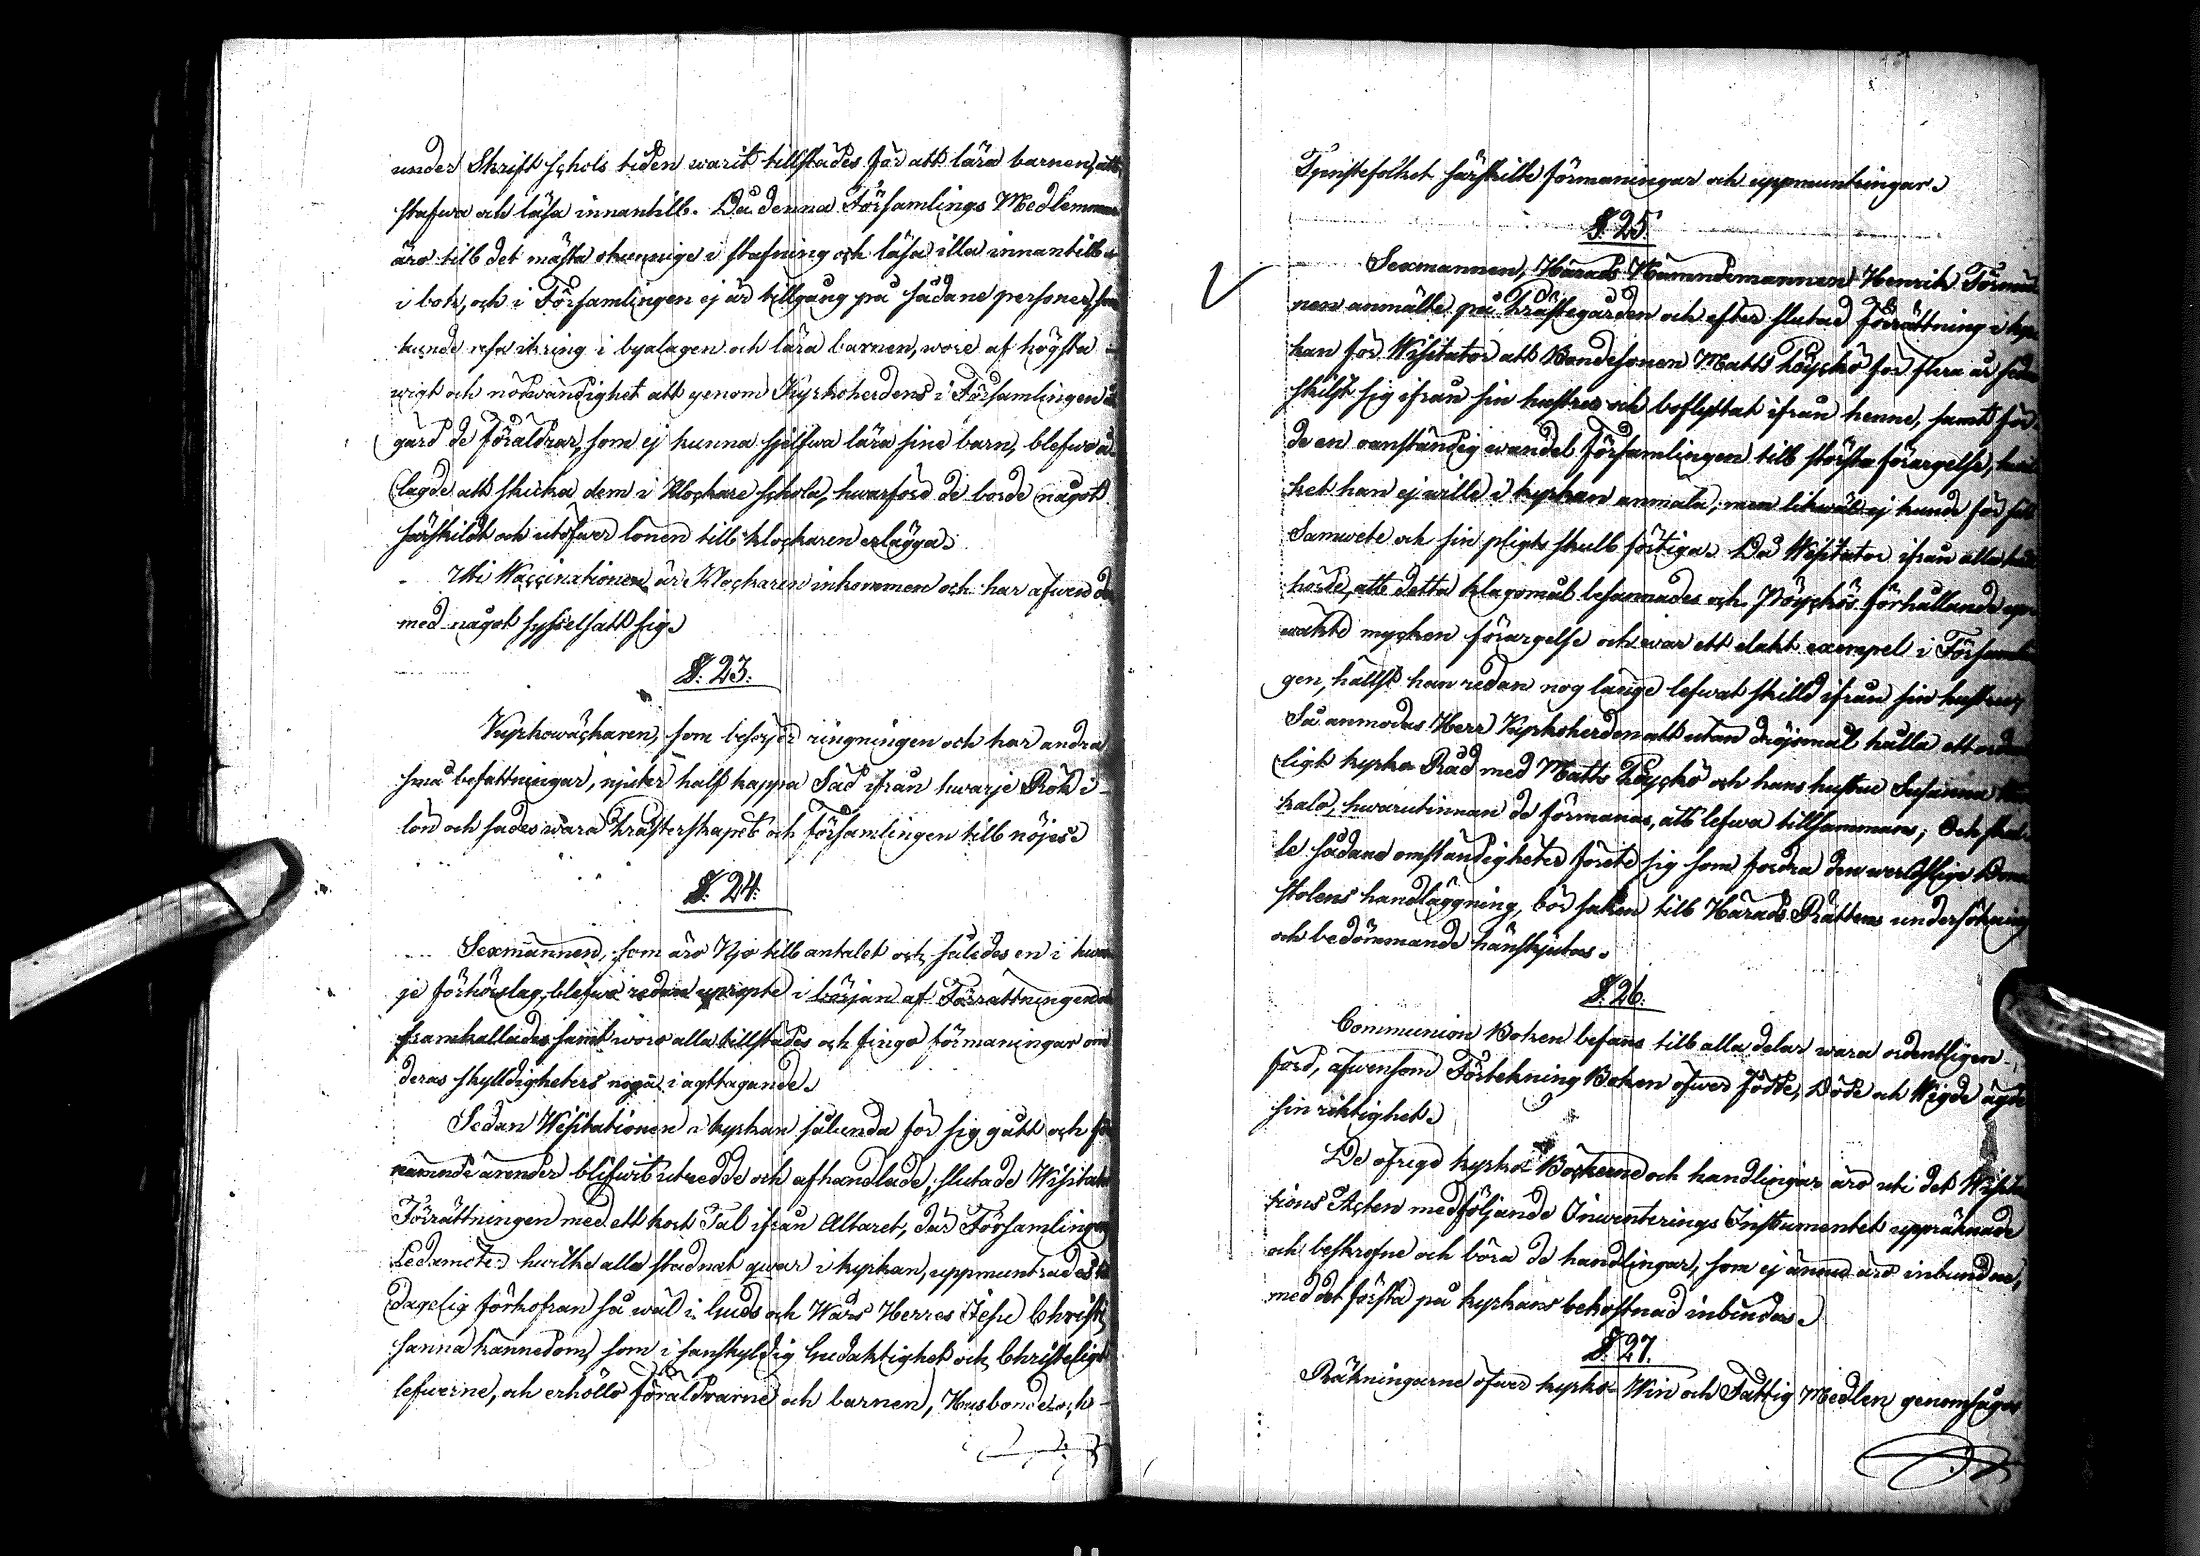 under Skrift Schols tiden warit tillstädes för att lära barnen, att
stafwa och läsa innantill. Då denna Församlings Medlemmar
äro till det mästa okunnige i stafning och läsa illa innantill
i bok, och i Församlingen ej är tillgång på sådane personer, som
kunde resa ikring i byalagen och lära barnen, wore af högsta
wigt och nödwändighet att genom Kyrkoherdens i Församlingen å-
gärd de föräldrar, som ej kunna sjelfwa lära sine barn, blefwo å-
lagde att skicka dem i Klockare Schola, hwarföre de borde något
särskildt och utöfwer lönen till klockaren erlägga.
Uti Vaccinationen är Klockaren inkommen och har äfwen der
med något sysselsatt sig.
§. 23.
Kyrkowäcktaren, som besörjer ringningen och har andra
små befattningar, njuter half kappa Säd ifrån hwarje Rök i
lön och sades wara Prästerskapet och församlingen till nöjes.
§. 24.
Sexmännen, som äro Njo till antalet och således en i hwar
je förhörslag, blefwo redan i början af Förrättningen
framkallade, samt woro alla tillstädes och fingo förmaningar om
deras skylldigheters noga i agttagande.
Sedan Wisitationen i kyrkan sålunda för sig gått och för
nämnde ärender blifwit utredde och afhandlade, slutade Wisitator
Förrättningen med ett kort Tal ifrån Altaret, där Församlingens
Ledamöter hwilka alla stadnat qwar i kyrkan, uppmuntrades till
dagelig förkofran så wäl i Guds och Wårs Herres Jesu Christi
sanna kännedom, som i sanskyldig Gudaktighet och Christeligt
lefwerne, och erhöllo föräldrarne och barnen, Husbonde och
Tjenstefolket särskilte förmaningar och uppmuntringar.
§. 25.
Sexmannen, Härads Nämndemannen Henrik
nen anmälte på Prästegården och efter slutad förrättning i kyr
kan för Wisitator att Bondesonen Matts Pöyckö för flera år sedan
skilst sig ifrån sin hustru och bortflyttat ifrån henne, samt för-
de en oanständig wandel Församlingen till största förargelse, hwil
ket han ej wille i kyrkan anmäla, men likwäl ej kunde för sitt
Samwete och sin pligts skull förtiga. Då Wisitator ifrån alla håll
hörde, att detta klagomål besannades och Pöyckös förhållande upp
wäkte mycken förargelse och war ett elakt exempel i Församlin
gen, hällst han redan nog länge lefwat skilld ifrån sin hustru,
Så anmodas Herr Kyrkoherden att utan dröjsmål hålla ett orden
ligt kyrko Råd med Matts Pöyckö och hans hustru Susanna
kalo, hwarutinnan de förmanas, att lefwa tillsammans; Och skul
le sådane omständigheter förete sig som fordra den werldslige Dom
stolens handläggning, bör saken till Härads Rättens undersökning
och bedömmande hänskjutas.
§. 26.
Communion Boken befans till alla delar wara ordentligen
förd, äfwensom Förtekning Boken öfwer Födde, Döde och Wigde ägde
sin riktighet.
De öfrige kyrko Böckerne och handlingar äro uti det Wisita
tions Acten medföljande Inwenterings Instrumentet uppräknade
och beskrefne och böra de handlingar, som ej ännu äro inbundne,
med det första på kyrkans bekostnad inbindas.
§. 27.
Räkningarne öfwer kyrko- Win och Fattig Medlen genomsågos